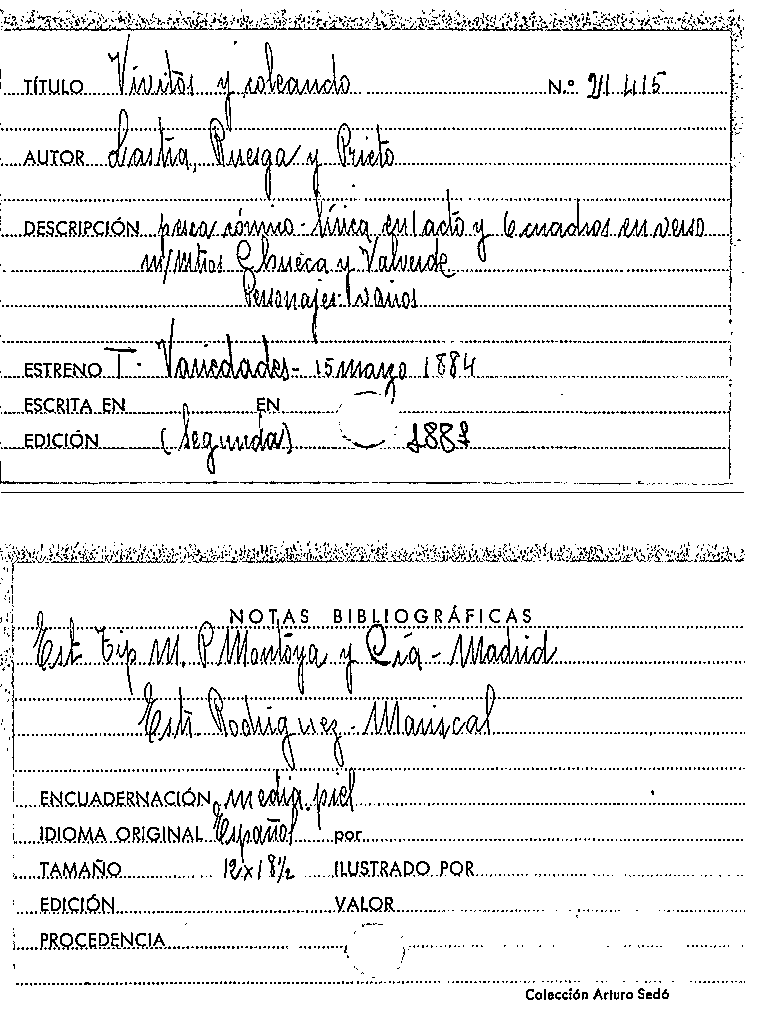 TÍTULO Vivitos y coleando N.º 21415
AUTOR Lastra, Ruesga y Prieto
DESCRIPCIÓN pieza cómico-lírica en 1 acto y 6 cuadros en verso
m/ Mtros Chueca y Valverde
Personajes-varios
ESTRENO T. Variedades - 15 marzo 1884
ESCRITA EN EN
EDICIÓN (Segunda) 1887
NOTAS BIBLIOGRÁFICAS
Est. Tip M. P Montoya y Cía - Madrid
Estr Rodríguez - Mariscal
ENCUADERNACIÓN media piel
IDIOMA ORIGINAL Español por
TAMAÑO 12x18½ ILUSTRADO POR
EDICIÓN VALOR
PROCEDENCIA
Colección Arturo Sedó